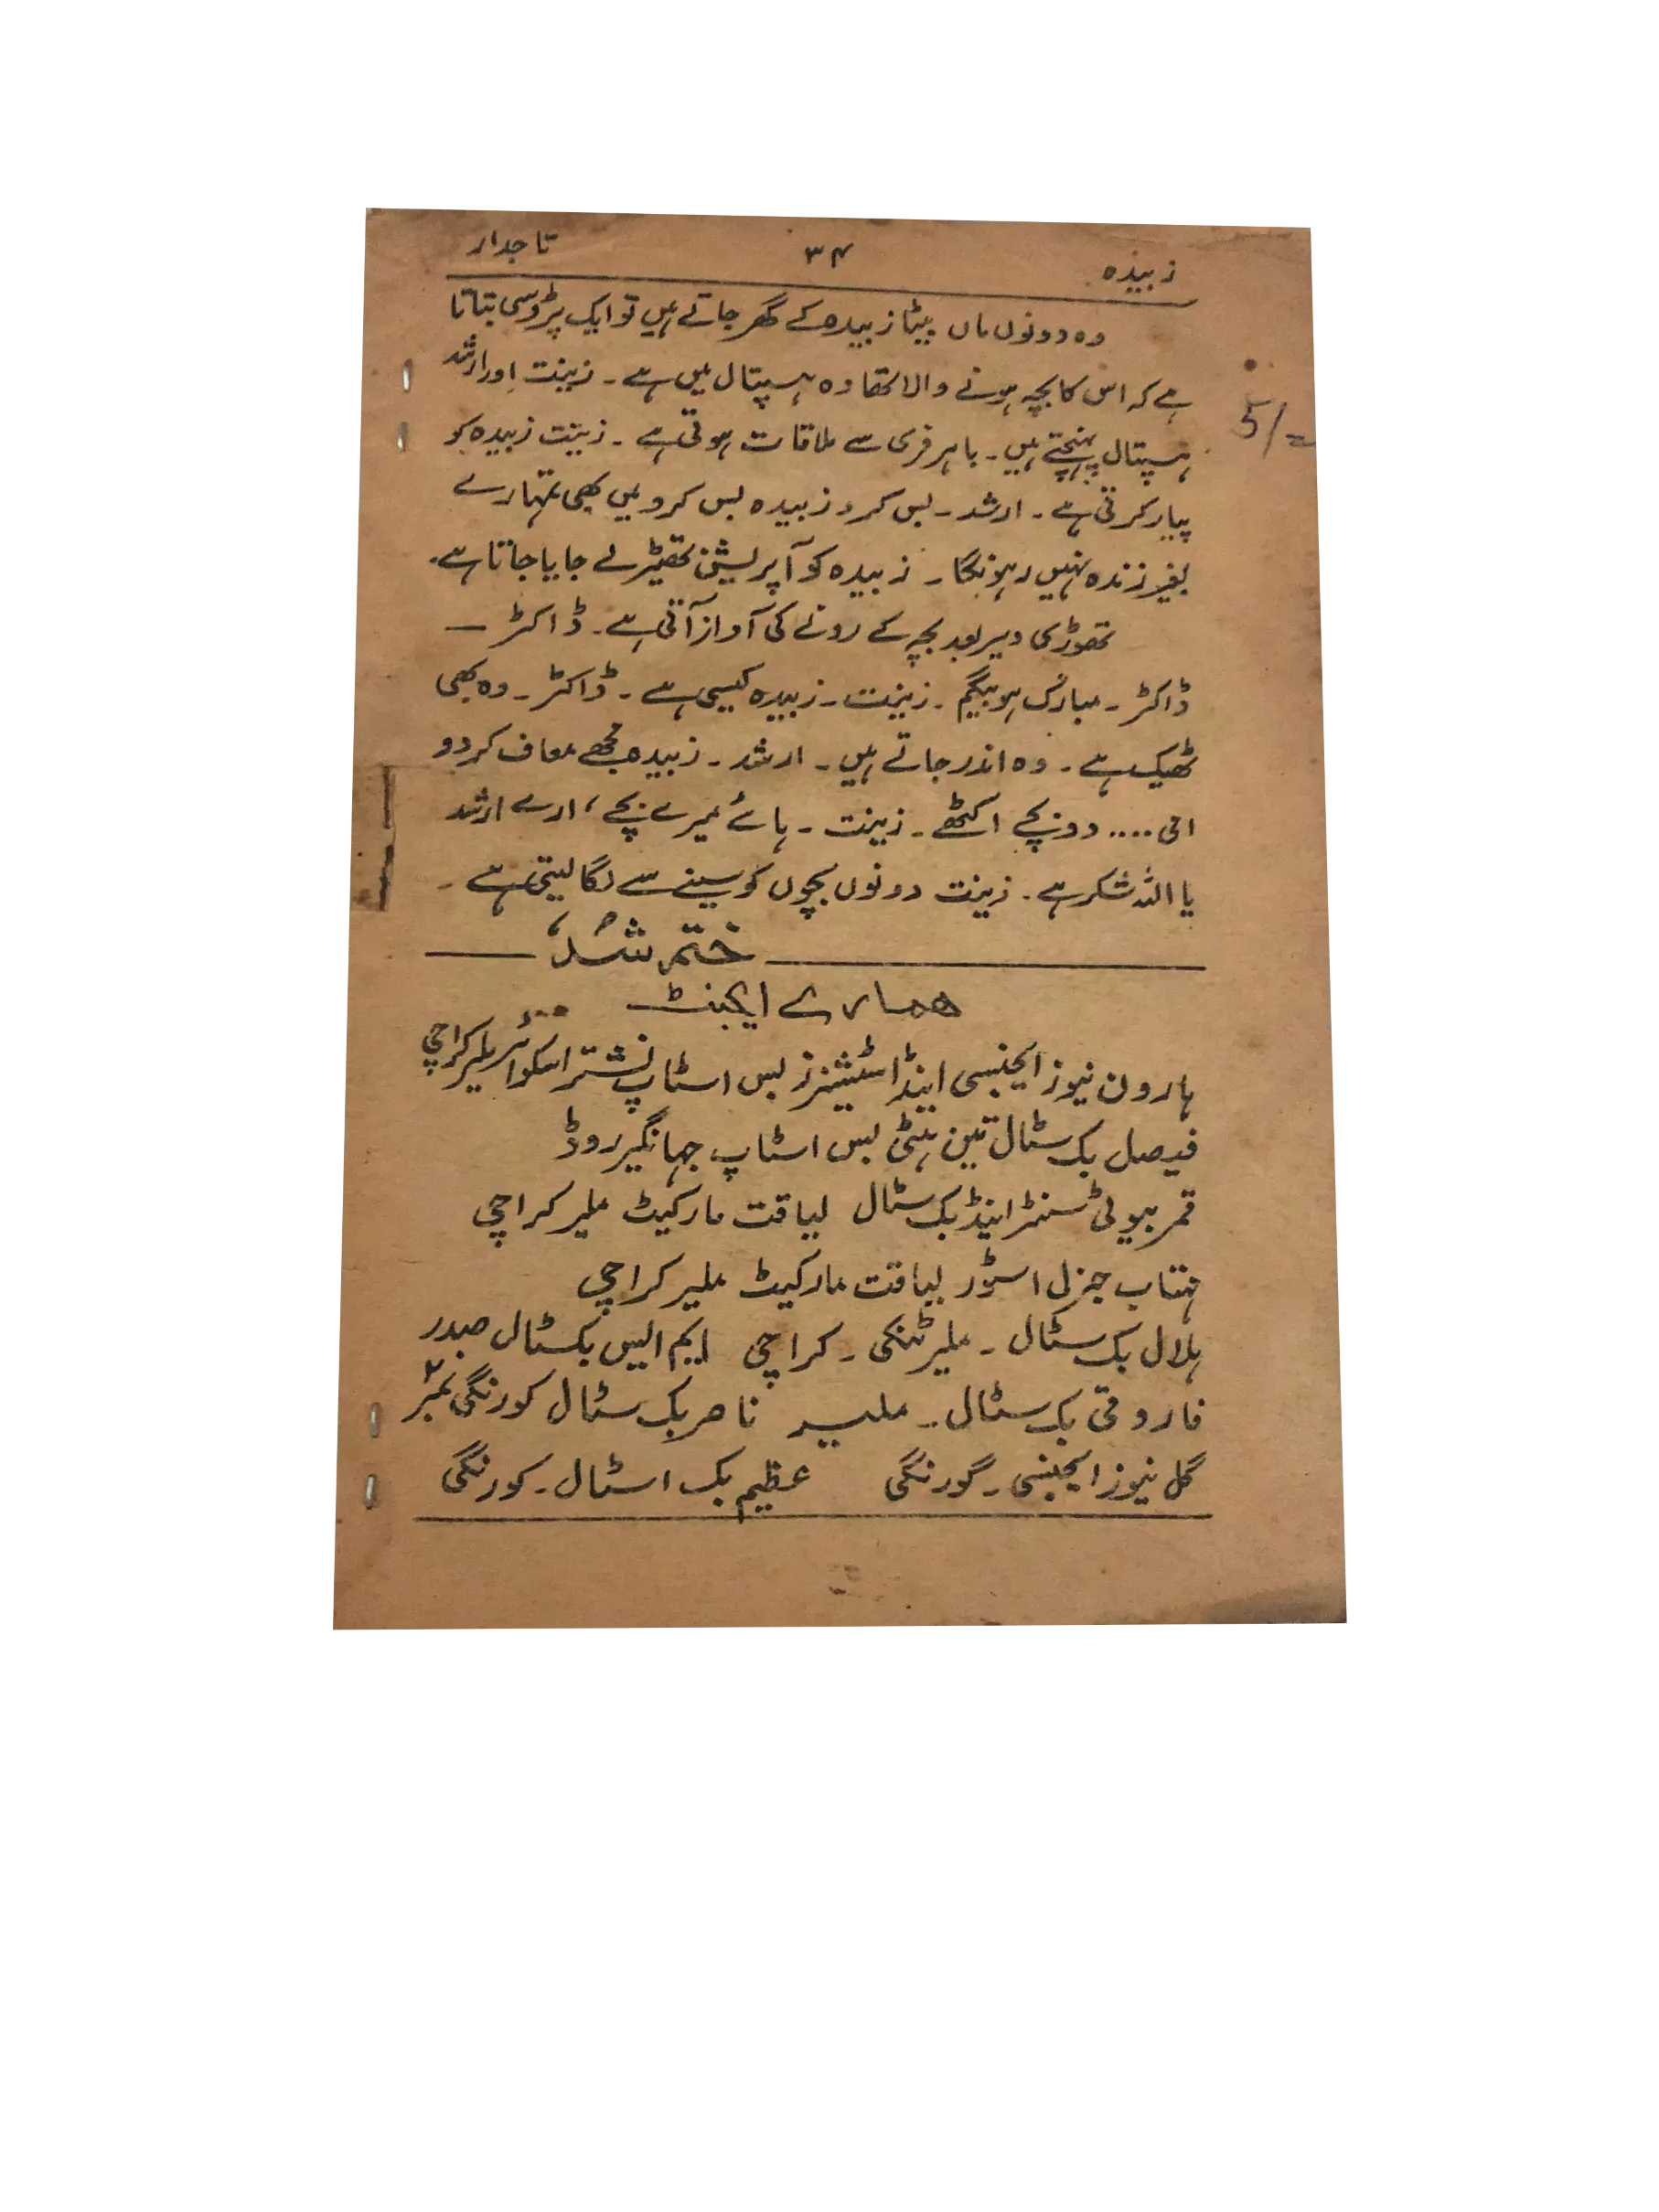 زبیدہ ۳۴ تاجدار
وہ دونوں ماں بیٹا زبیدہ کے گھر جاتے ہیں تو ایک پڑوسی بتاتا
ہے کہ اس کا بچہ ہونے والا تھا وہ ہسپتال میں ہے ۔ زینت اور ارشد
ہسپتال پہنچتے ہیں ۔ باہر فری سے ملاقات ہوتی ہے ۔ زینت زبیدہ کو
پیار کرتی ہے ۔ ارشد ۔ بس کرو زبیدہ بس کرو میں بھی تمہارے
بغیر زندہ نہیں رہونگا ۔ زبیدہ کو آپریشن تھیٹر لے جایا جاتا ہے ۔
تھوڑی دیر بعد بچہ کے رونے کی آواز آتی ہے ۔ ڈاکٹر —
ڈاکٹر ۔ مبارک ہو بیگم ۔ زینت ۔ زبیدہ کیسی ہے ۔ ڈاکٹر ۔ وہ بھی
ٹھیک ہے ۔ وہ اندر جاتے ہیں ۔ ارشد ۔ زبیدہ مجھے معاف کر دو
امی .... دو بچے اکٹھے ۔ زینت ۔ ہائے میرے بچے ، ارے ارشد
یا اللہ شکر ہے ۔ زینت دونوں بچوں کو سینے سے لگا لیتی ہے ۔
ختم شد
ہمارے ایجنٹ
ہارون نیوز ایجنسی اینڈ اسٹیشنرز بس اسٹاپ نشتر اسکوائر ملیر کراچی
فیصل بک سٹال تین ہٹی بس اسٹاپ جہانگیر روڈ
قمر بیوٹی سنٹر اینڈ بک سٹال لیاقت مارکیٹ ملیر کراچی
مہتاب جنرل اسٹور لیاقت مارکیٹ ملیر کراچی
ہلال بک سٹال ۔ ملیر ٹنکی ۔ کراچی ایم ایس بکسٹال صدر
فاروقی بک سٹال ۔ ملیر ناصر بک سٹال کورنگی نمبر ۲
گل نیوز ایجنسی ۔ گورنگی عظیم بک اسٹال ۔ کورنگی
5/=